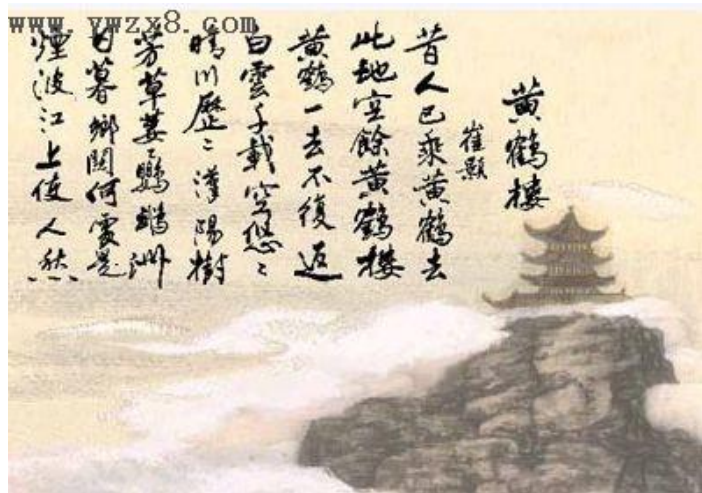 www.ywzx8.com
黄鶴樓
崔顥
昔人已乘黄鶴去
此地空餘黄鶴樓
黄鶴一去不復返
白雲千載空悠〻
晴川歷〻漢陽樹
芳草萋〻鸚鵡洲
日暮鄉關何處是
煙波江上使人愁